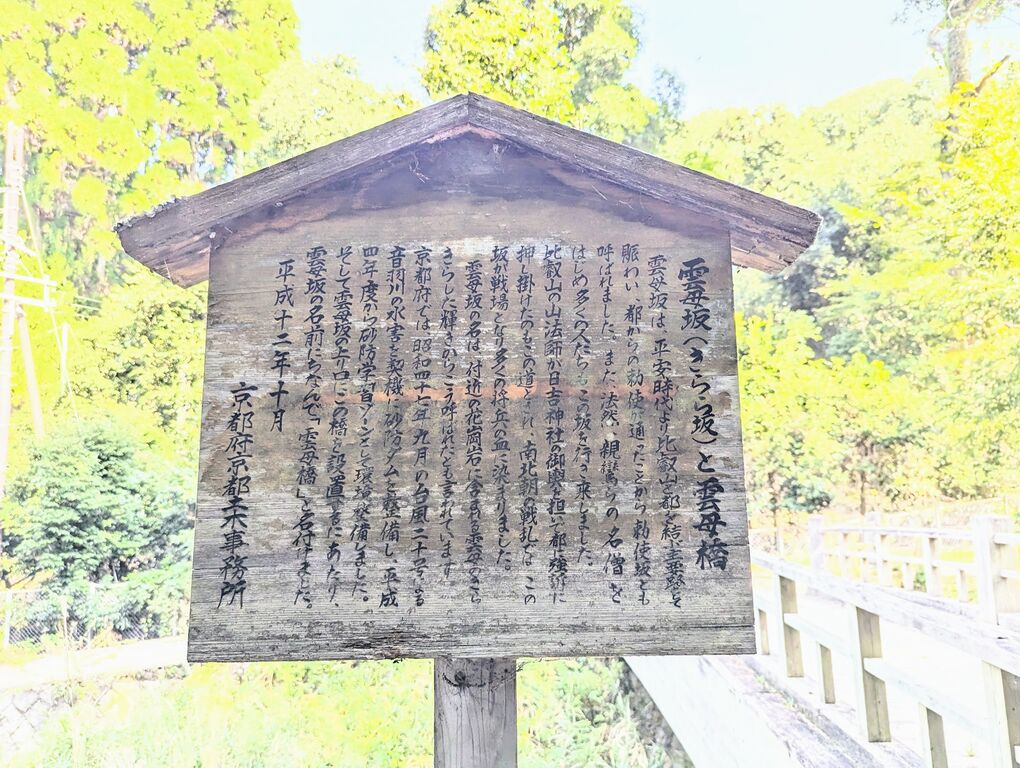 雲母坂(きらら坂)と雲母橋
雲母坂は、平安時代より比叡山と都を結ぶ主要路を
賑わい、都からの勅使が通ったことから勅使坂とも
呼ばれました。また、法然、親鸞らの名僧を
はじめ多くの人たちもこの坂を行き来しました。
比叡山の山法師が日吉神社の御輿を担いで都へ強訴に
押し掛けたのもこの道とされ、南北朝の戦乱では、この
坂が戦場となり多くの将兵の血で染まりました。
雲母坂の名は、付近の花崗岩に含まれる雲母のきら
きらした輝きからこう呼ばれたとも言われています。
京都府では、昭和四十七年九月の台風二十号による
音羽川の水害を契機に砂防ダムを整備し、平成
四年度から砂防学習ゾーンとして環境整備しました。
そして雲母坂の上り口にこの橋を設置するにあたり、
雲母坂の名前にちなんで「雲母橋」と名付けました。
平成十二年十月
京都府京都土木事務所